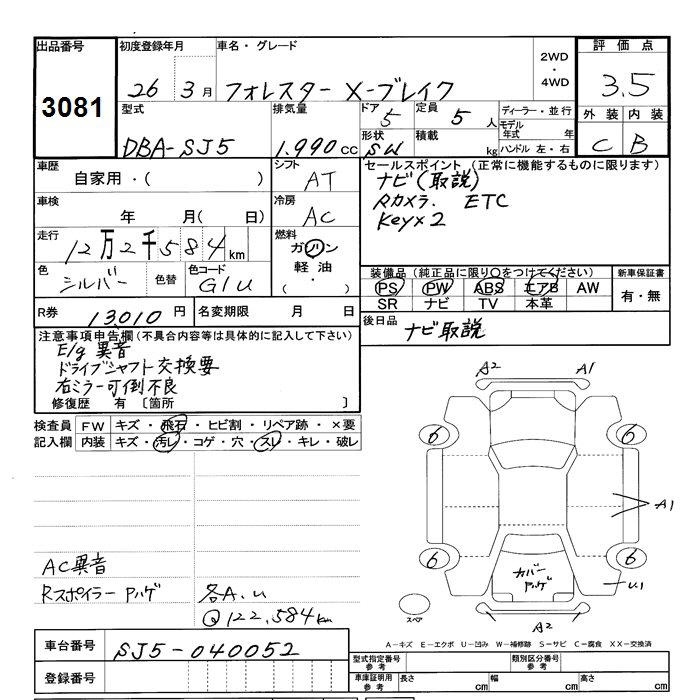 出品番号 初度登録年月 車名・グレード 2WD・4WD 評価点
3081 26 3月 フォレスター X-ブレイク 3.5
型式 排気量 ドア 5 定員 5人 ディーラー・並行 外装 内装
DBA-SJ5 1.990cc 形状 SW 積載 kg モデル年式 年 C B
ハンドル 左・右
車歴 シフト セールスポイント (正常に機能するものに限ります)
自家用・( ) AT ナビ(取説)
車検 冷房 Rカメラ. ETC
年 月( 日) AC Key×2
走行 燃料
12万2千584km ガソリン
色 シルバー 色替 色コード G1U 軽油・( )
装備品 (純正品に限り○をつけてください) 新車保証書
PS PW ABS エアB AW 有・無
SR ナビ TV 本革
R券 13,010円 名変期限 月 日
後日品 ナビ取説
注意事項申告欄(不具合内容等は具体的に記入して下さい)
E/g 異音
ドライブシャフト交換要
右ミラー可倒不良
修復歴 有 〔箇所 〕
検査員記入欄
FW キズ・飛石・ヒビ割・リペア跡・×要
内装 キズ・汚レ・コゲ・穴・スレ・キレ・破レ
A2 A1
6 6
A1
6 6
カバーハゲ
U1
A2
スペア
AC異音
Rスポイラーハゲ 各A.U
Q122,584km
A-キズ E-エクボ U-凹み W-補修跡 S-サビ C-腐食 XX-交換済
車台番号 SJ5-040052
登録番号
型式指定番号 参考 類別区分番号 参考
車庫証明用 参考 長さ cm 幅 cm 高さ cm